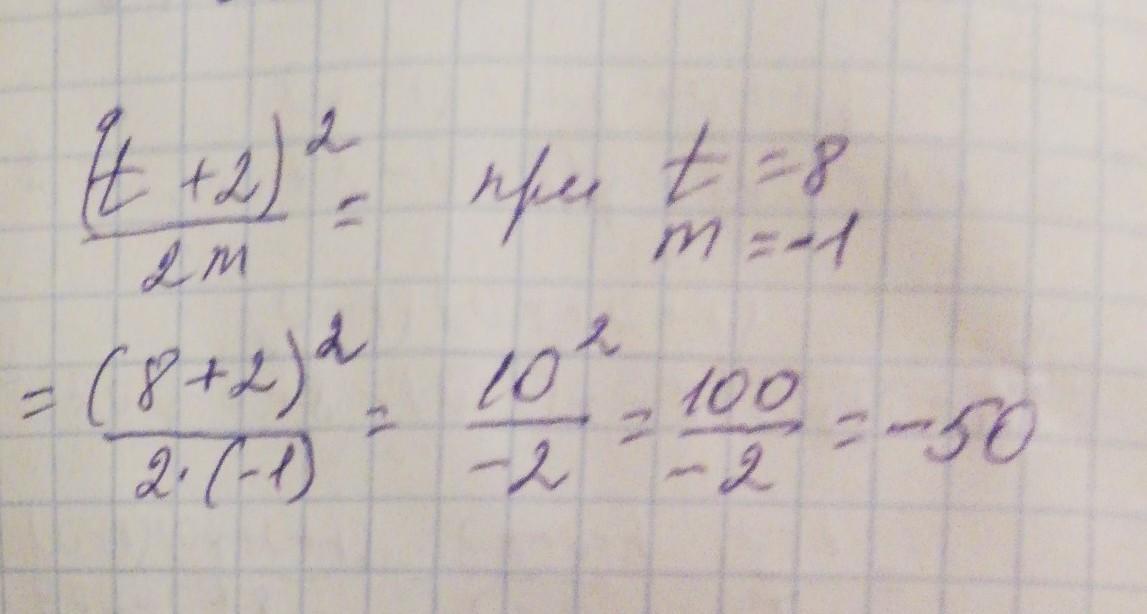 (t + 2)² / 2m = при t = 8
m = -1
= (8 + 2)² / 2·(-1) = 10² / -2 = 100 / -2 = -50